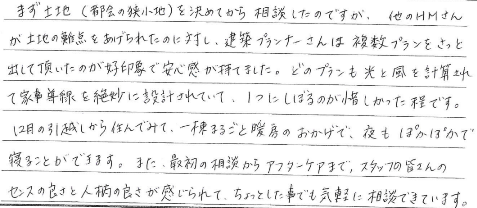 まず土地(都会の狭小地)を決めてから相談したのですが、他のHMさん
が土地の難点をあげられたのに対し、建築プランナーさんは複数プランをさっと
出して頂いたのが好印象で安心感が持てました。どのプランも光と風を計算され
て家事導線を絶妙に設計されていて、1つにしぼるのが惜しかった程です。
12月の引越しから住んでみて、一棟まるごと暖房のおかげで、夜もぽかぽかで
寝ることができます。また、最初の相談からアフターケアまで、スタッフの皆さんの
センスの良さと人柄の良さが感じられて、ちょっとした事でも気軽に相談できています。